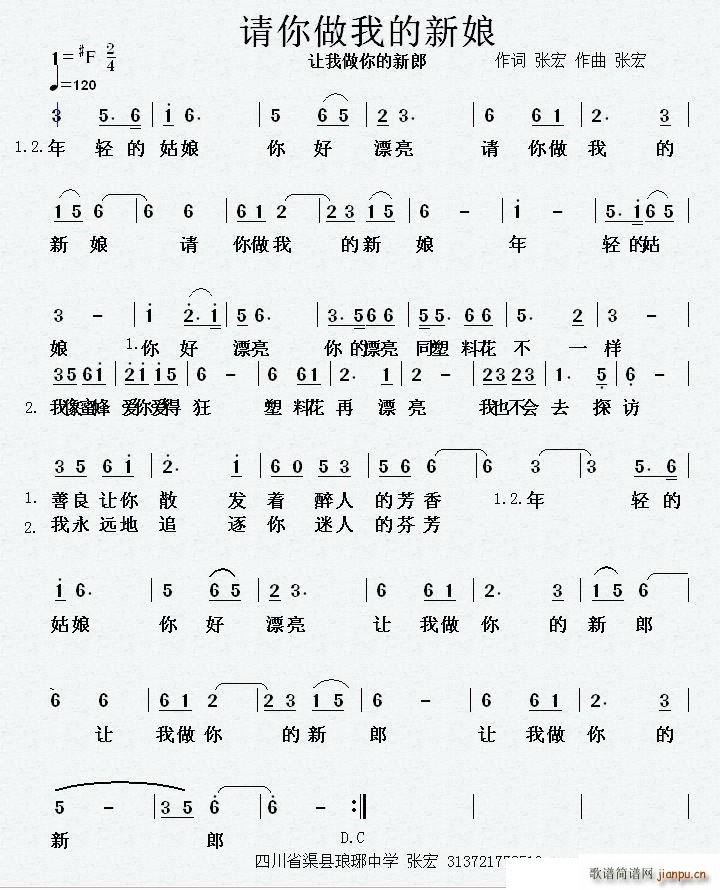 请你做我的新娘
1=♯F 2/4
让我做你的新郎 作词 张宏 作曲 张宏
♩=120
3 5. 6 | 1 6. | 5 6 5 | 2 3 | 6 6 1 | 2. 3 |
1.2. 年 轻的 姑娘 你 好 漂亮 请 你做 我 的
1 5 6 | 6 6 | 6 1 2 | 2 3 1 5 | 6 - | 1 - | 5. 1 6 5 |
新 娘 请 你做我 的新 娘 年 轻的姑
3 - | 1 2. 1 | 5 6. | 3. 5 6 6 | 5 5. 6 6 | 5. 2 | 3 - |
娘 1. 你 好 漂亮 你 的漂亮 同塑 料花 不 一 样
3 5 6 1 | 2 1 1 5 | 6 - | 6 6 1 | 2. 1 | 2 - | 2 3 2 3 | 1. 5 | 6 - |
2. 我像蜜蜂 爱你爱得 狂 塑 料花 再 漂亮 我也不会 去 探 访
3 5 6 1 | 2. 1 | 6 0 5 3 | 5 6 6 | 6 3 | 3 - | 5. 6 |
1. 善良让你 散 发 着 醉人 的芳香 1.2.年 轻的
2. 我永远地 追 逐 你 迷人 的芬芳
1 6. | 5 6 5 | 2 3 | 6 6 1 | 2. 3 | 1 5 6 |
姑娘 你 好 漂亮 让 我做 你 的 新 郎
6 6 | 6 1 2 | 2 3 1 5 | 6 - | 6 6 1 | 2. 3 |
让 我做你 的新 郎 让 我做 你 的
5 - | 3 5 6 | 6 - :|
新 郎 D.C
四川省渠县琅琊中学 张宏
歌谱简谱网
jianpu.cn